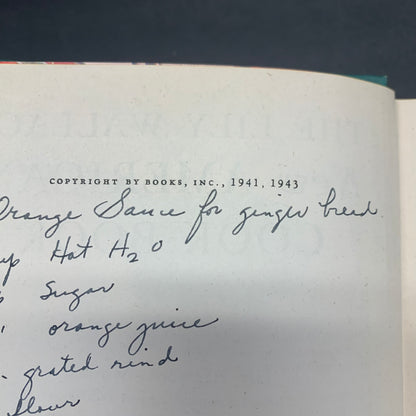 COPYRIGHT BY BOOKS, INC., 1941, 1943
Orange Sauce for ginger bread.
Hot H2O
Sugar
orange juice
grated rind
flour